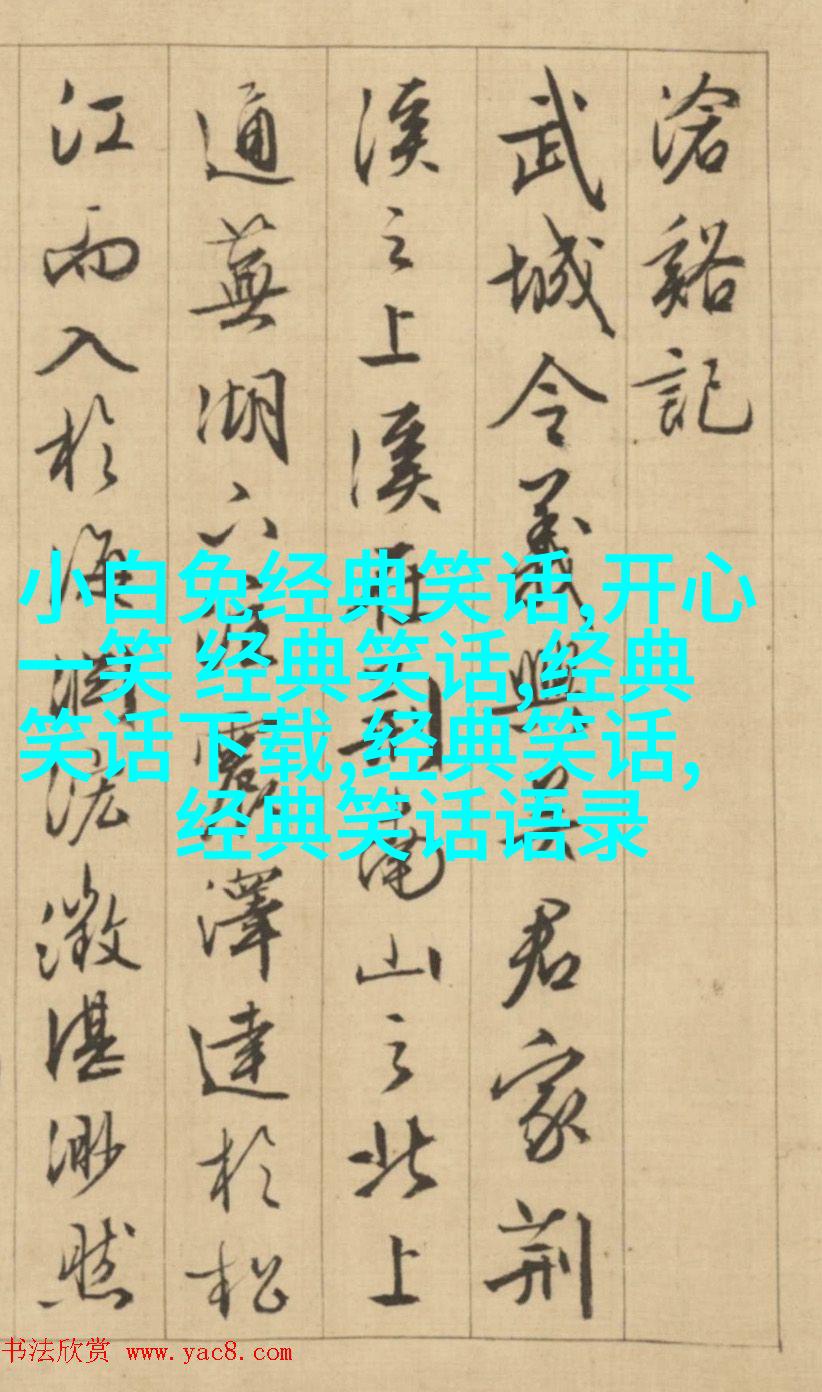 滄谿記
武城令義興吳君家荆
溪之上溪在荆南山之北上
通蕪湖
澤達於松
江而入於海
澂湛渺然
小白兔经典笑话,开心
一笑 经典笑话,经典
笑话下载,经典笑话,
经典笑话语录
书法欣赏 www.yac8.com